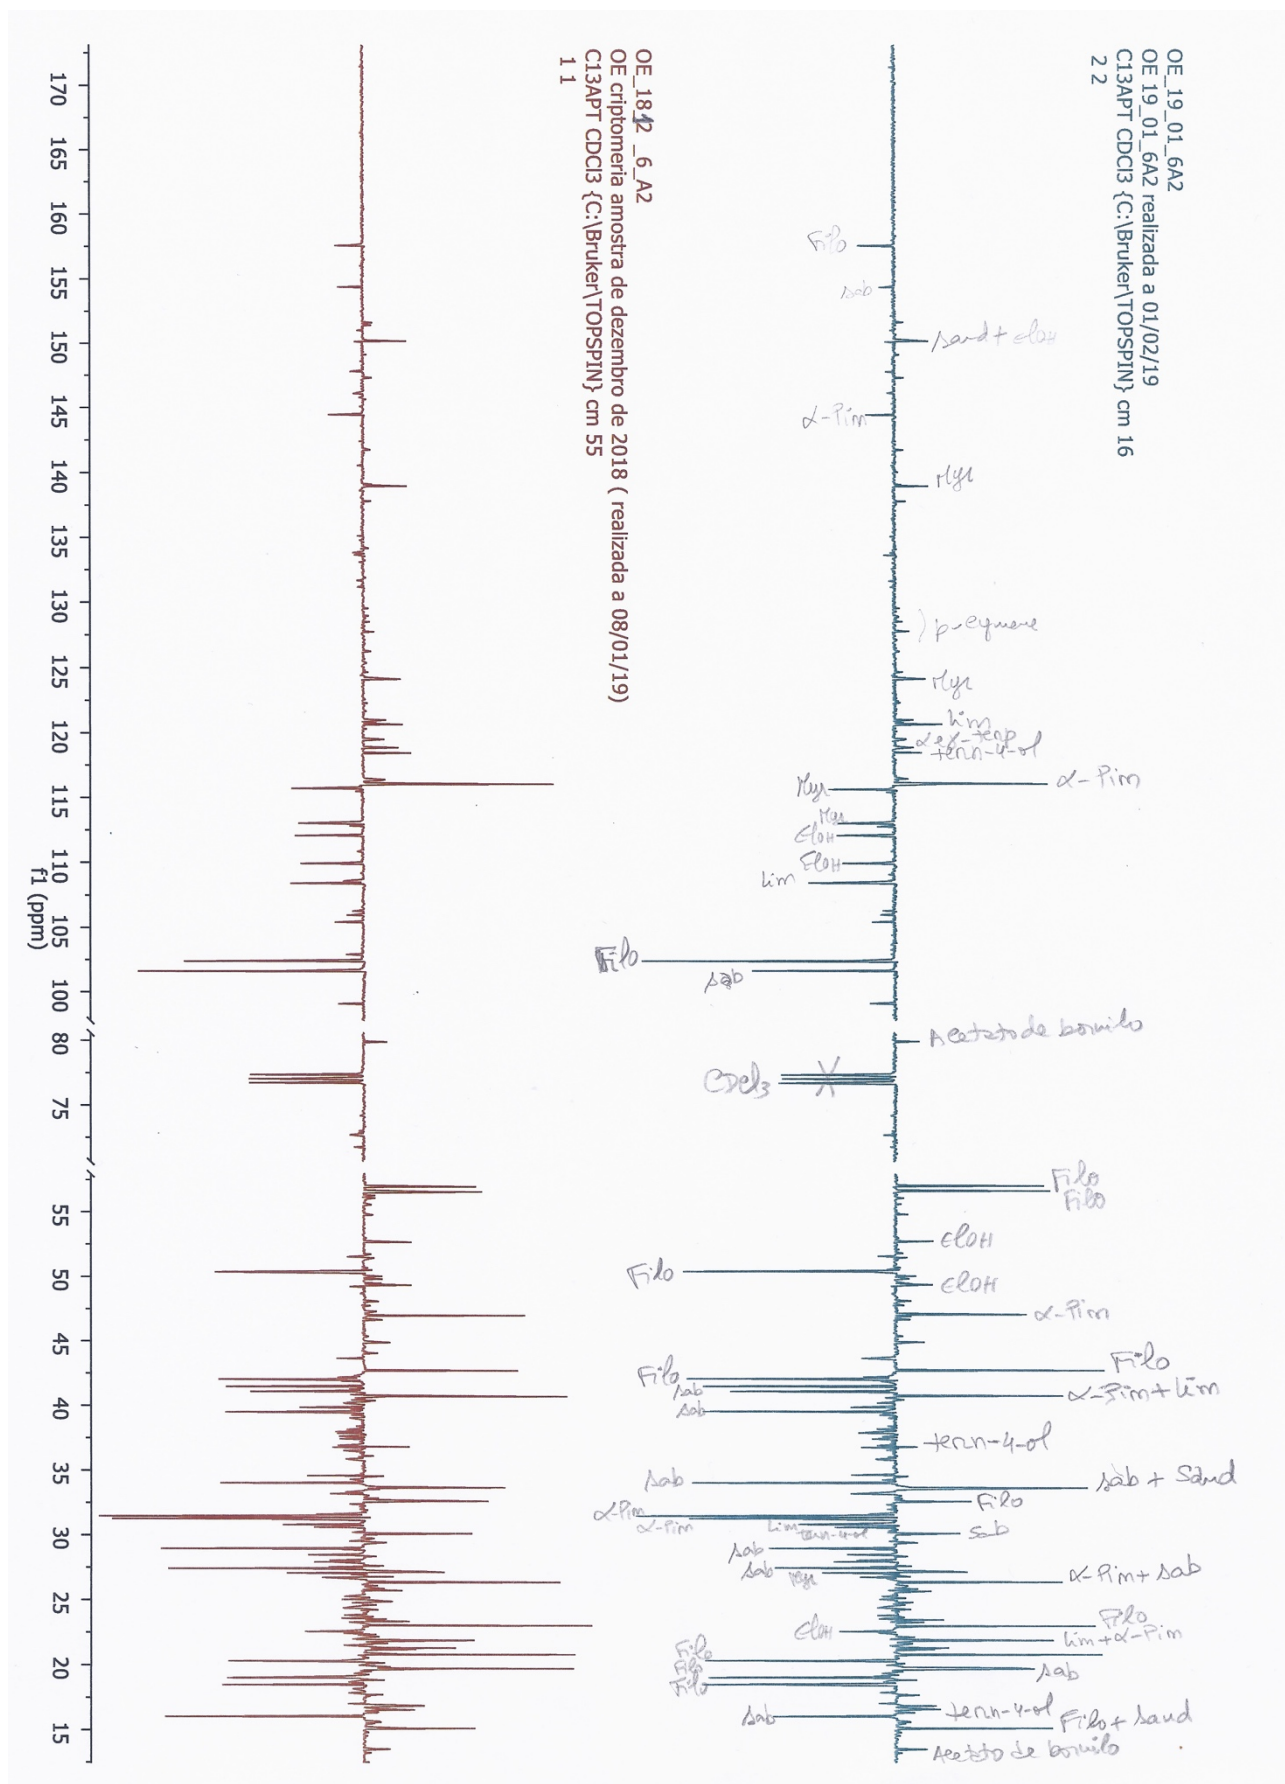 OE_19_01_6A2
OE 19_01_6A2 realizada a 01/02/19
C13APT CDCl3 {C:\Bruker\TOPSPIN} cm 16
2 2
Filo
sab
sand + elOH
α-Pim
Myr
p-cymene
Myr
Lim
α e γ-terp
tern-4-ol
α-Pim
Myr
Myr
ElOH
ElOH
Lim
Filo
sab
Acetato de bornilo
CDCl3
Filo
Filo
ElOH
Filo
ElOH
α-Pim
Filo
Filo
sab
α-Pim + Lim
sab
tern-4-ol
sab
sab + Sand
Filo
α-Pim
α-Pim
Lim
tern-4-ol
sab
sab
sab
Myr
α-Pim + sab
Filo
ElOH
Lim + α-Pim
Filo
Filo
sab
Filo
tern-4-ol
sab
Filo + sand
Acetato de bornilo
OE_1812_6_A2
OE criptomeria amostra de dezembro de 2018 ( realizada a 08/01/19)
C13APT CDCl3 {C:\Bruker\TOPSPIN} cm 55
1 1
170 165 160 155 150 145 140 135 130 125 120 115 110 105 100 80 75 55 50 45 40 35 30 25 20 15
f1 (ppm)